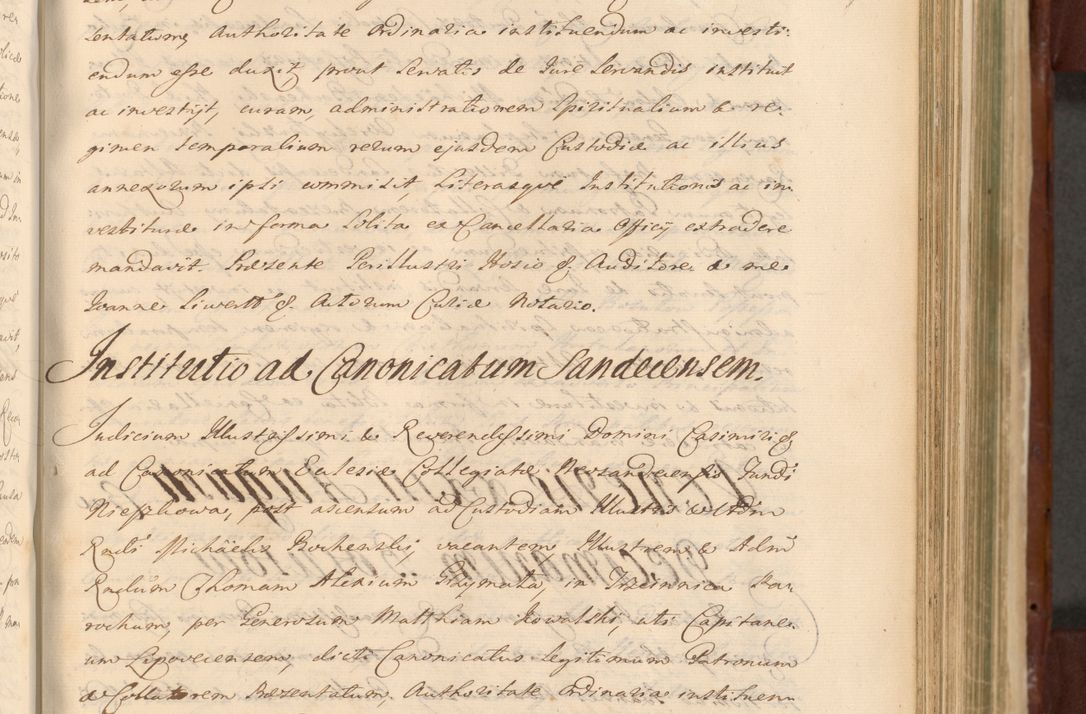 sentatum, Authoritate Ordinaria instituendum ac investi-
endum esse duxit prout servatis de Jure servandis instituit
ac investijt, curam, administrationem Spiritualium & re-
gimen temporalium rerum ejusdem Custodiæ ac illius
annexorum ipsi commisit, Literasque Institutionis ac in-
vestituræ in forma solita ex Cancellaria Officij extradere
mandavit. Præsente Perillustri Hosio & Auditore & me
Joanne Siwertt & Actorum Curiæ Notario.
Institutio ad Canonicatum Sandecensem.
Judicium Illustrissimi & Reverendissimi Domini Casimiri &
ad Canonicatum Ecclesiæ Collegiatæ Neosandecensis Fundi
post ascensum ad Custodiam Illustris & Adm
Rndi Michäelis vacantem, Illustrem & Adm
Rndum Thomam Alexium in Trzcinnica Pa-
rochum, per Generosum Matthiam Kowalski, uti Capitane-
um Lipovecensem, dicti Canonicatus legitimum Patronum
& Collatorem Præsentatum, Authoritate Ordinaria instituen-